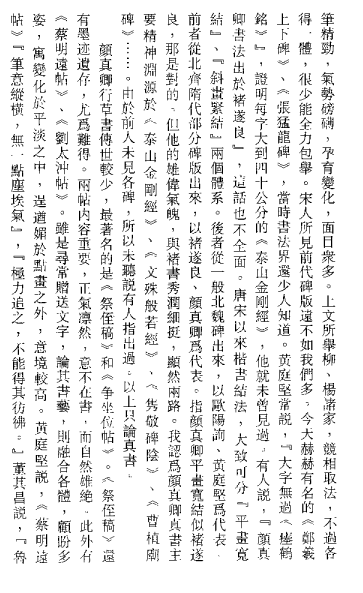 筆精勁，氣勢磅礴，孕育變化，面目衆多。上文所舉柳、楊諸家，競相取法，不過各
得一體，很少能全力包舉。宋人所見前代碑版遠不如我們多。今天赫赫有名的《鄭羲
上下碑》、《張猛龍碑》，當時書法界還少人知道。黃庭堅常説，『大字無過《瘞鶴
銘》』，證明每字大到四十公分的《泰山金剛經》，他就未曾見過。有人説，『顔真
卿書法出於褚遂良』，這話也不全面。唐宋以來楷書結法，大致可分『平畫寬
結』、『斜畫緊結』兩個體系。後者從一般北魏碑出來，以歐陽詢、黃庭堅爲代表，
前者從北齊隋代部分碑版出來，以褚遂良、顔真卿爲代表。指顔真卿平畫寬結似褚遂
良，那是對的。但他的雄偉氣魄，與褚書秀潤細挺，顯然兩路。我認爲顔真卿真書主
要精神淵源於《泰山金剛經》、《文殊般若經》、《雋敬碑陰》、《曹植廟
碑》……。由於前人未見各碑，所以未聽説有人指出過。以上只論真書。
顔真卿行草書傳世較少，最著名的是《祭侄稿》和《爭坐位帖》。《祭侄稿》還
有墨迹遺存，尤爲難得。兩帖内容重要，正氣凛然，意不在書，而自然雄絶。此外有
《蔡明遠帖》、《劉太沖帖》。雖是尋常贈送文字，論其書藝，則融合各體，顧盼多
姿，寓變化於平淡之中，逞遒媚於點畫之外，意境較高。黃庭堅説，《蔡明遠
帖》『筆意縱橫，無一點塵埃氣』，『極力追之，不能得其彷彿。』董其昌説，『魯